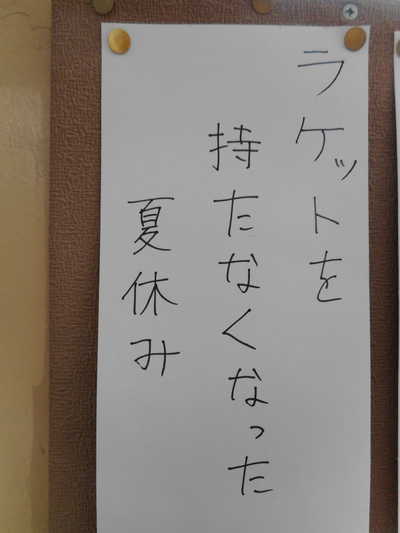 ラケットを
持たなくなった
夏休み